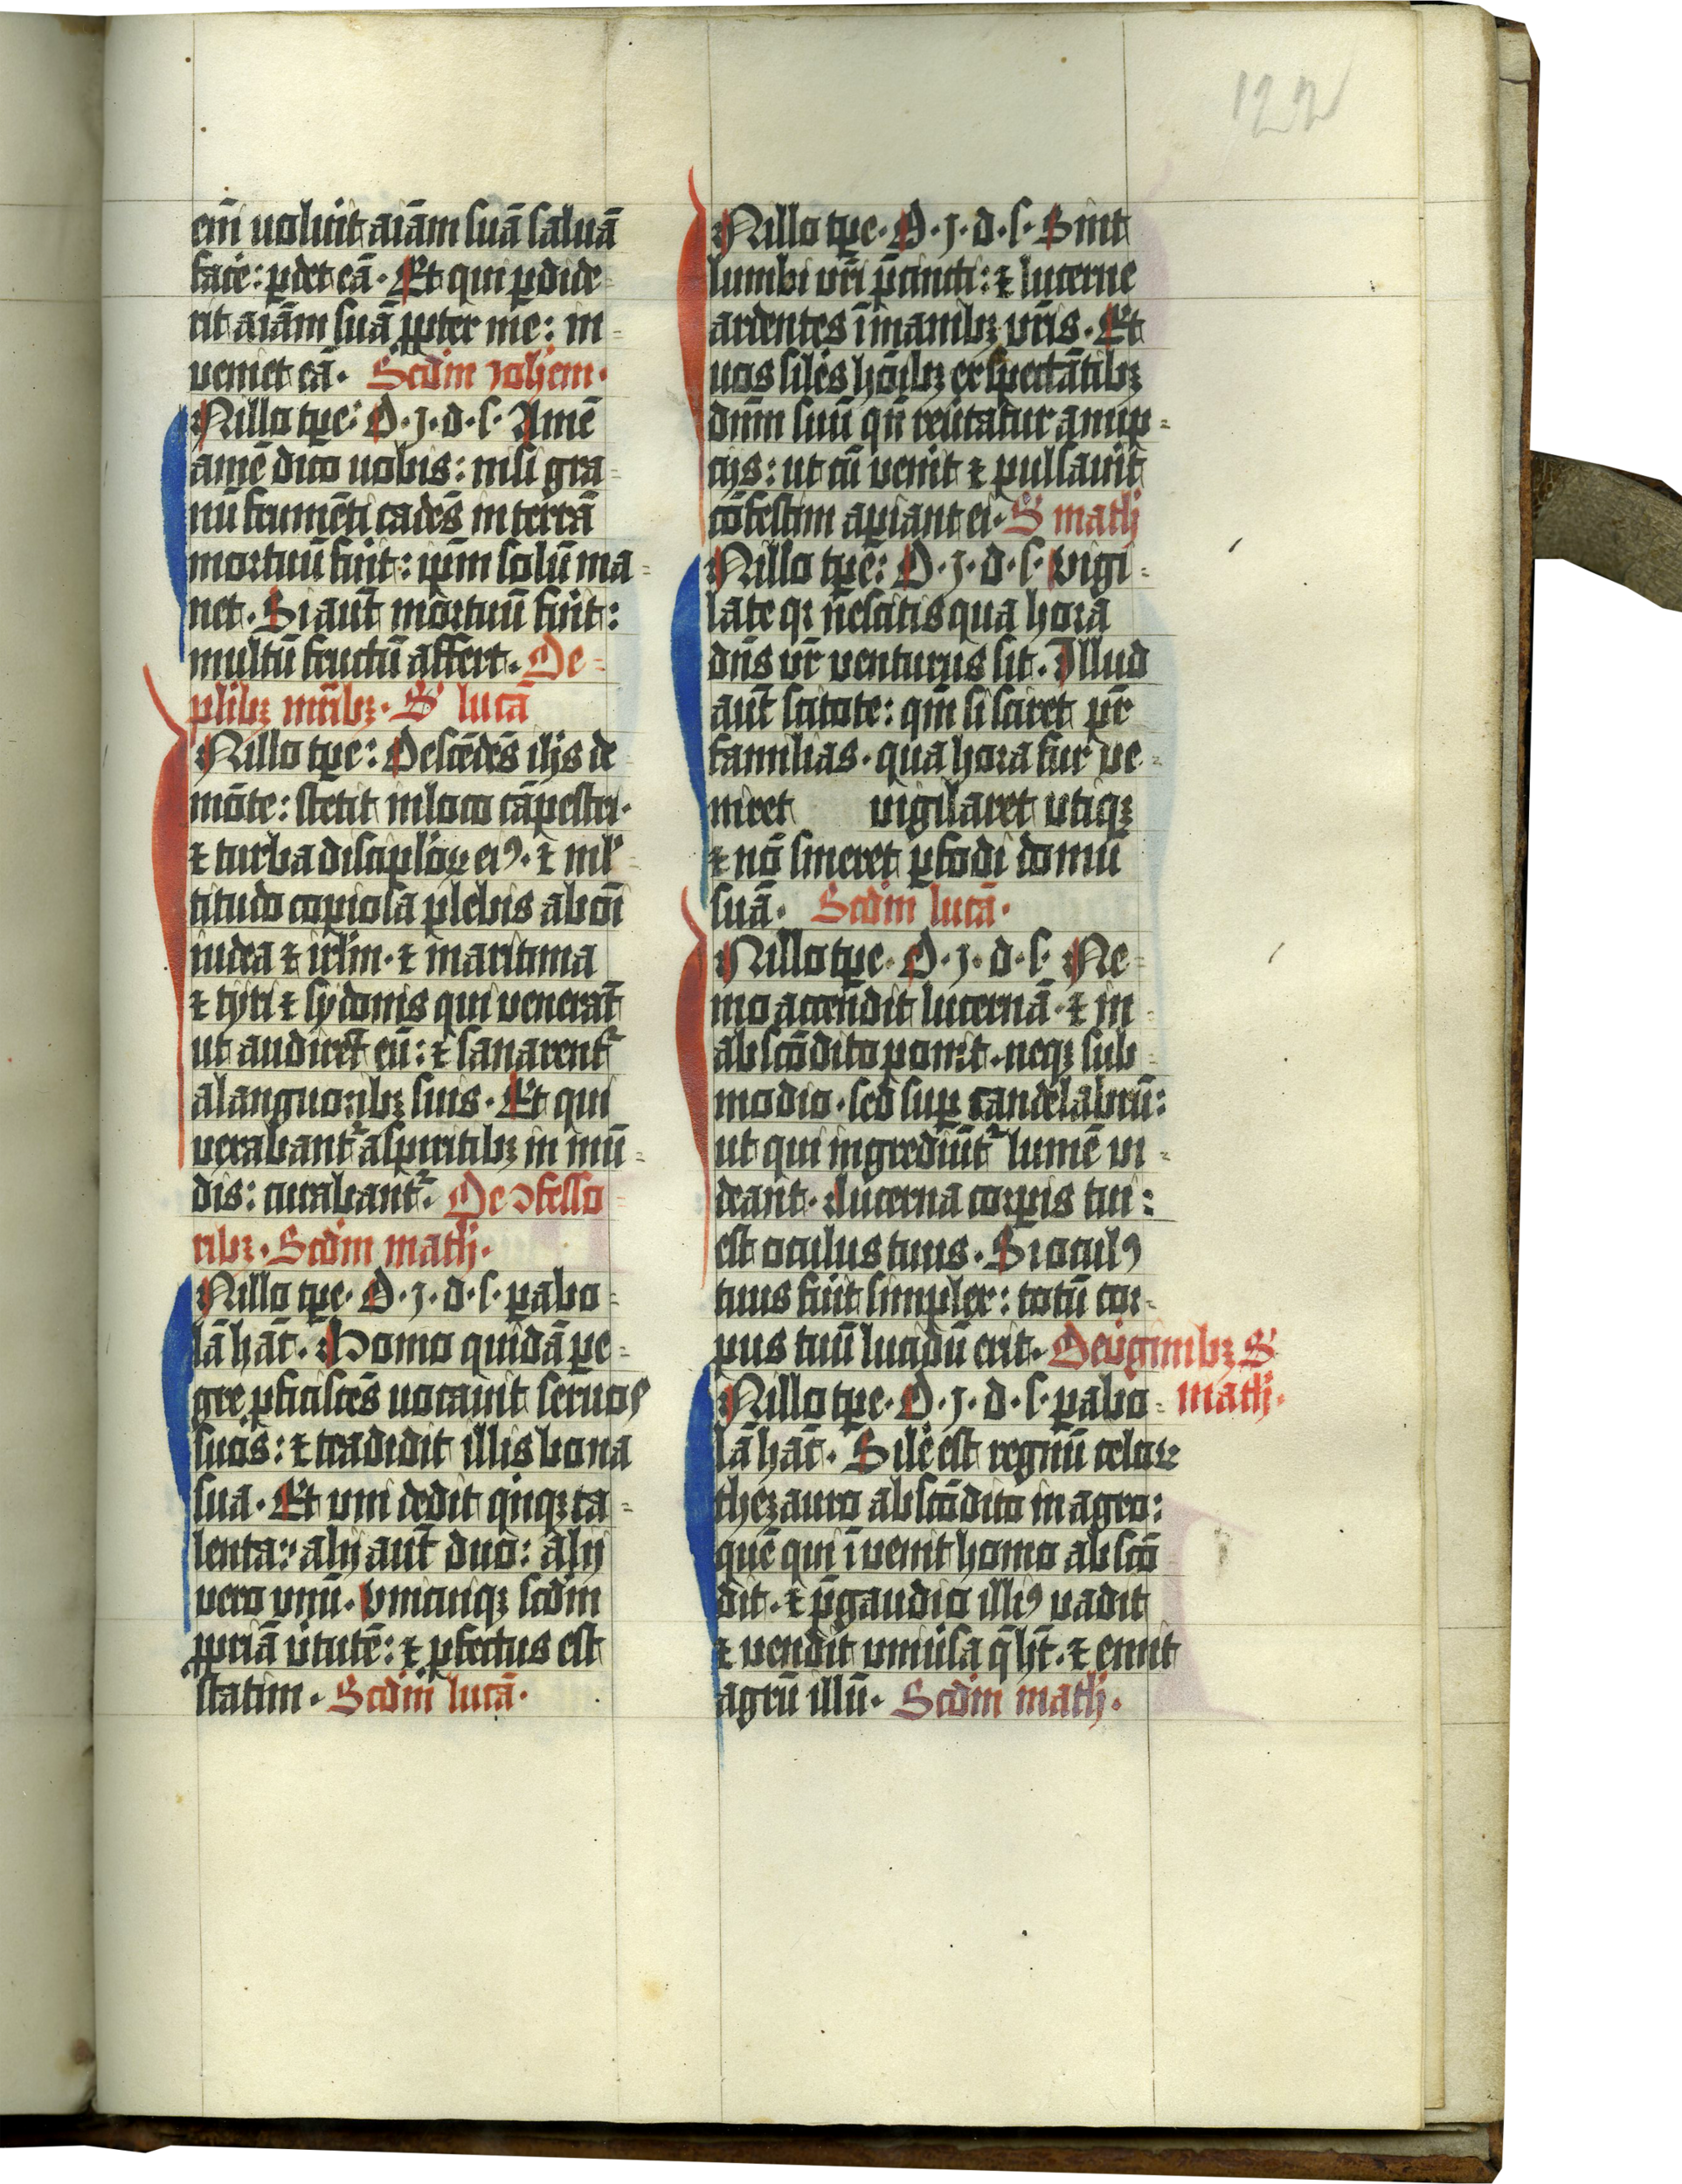 122
em̄ uolu̇it aiām suā saluā
facė: ꝑdet eā. Et qui ꝑdide=
rit aiām suā ꝓpter me: in=
veniet eā. Scd̄m ioh̄em.
INillo tp̄e: D. J. d. s. Amē
amē dico uobis: nisi gra=
nū frumēti cadēs in terrā
mortuū fūit: ip̄m solū ma=
net. Si aut̄ mortuū fūit:
multū fructū affert. De=
plib⁊ mr̄ib⁊. S̄ lucā
INillo tp̄e: Descēdēs ih̄s de
mōte: stetit inloco cāpestri.
⁊ turba disciplōꝝ eiꝯ. ⁊ ml̓=
titudo copiosa plebis ab oī
iudea ⁊ irl̄m. ⁊ maritima
⁊ tyri ⁊ sydonis qui venerāt
ut audirēt eū: ⁊ sanarent᷑
alanguorib⁊ suis. Et qui
vexabant᷑ aspiritib⁊ in mū=
dis: curabant᷑. De ꝯfesso=
rib⁊. Scd̄m math̄.
INillo tp̄e. D. J. d. s. ꝑabo=
lā hāc. Homo quidā ꝑe=
gre ꝓficiscēs uocauit seruos
suos: ⁊ tradidit illis bona
sua. Et vni dedit qu̇nq⁊ ta=
lenta: alij aut̄ duo: alij
vero vnū. Vnicuiq⁊ scd̄m
ꝓpriā v̇tutē: ⁊ ꝓfectus est
statim. Scd̄m lucā.
INillo tp̄e. D. J. d. s. Sint
lumbi vr̄i p̄cincti: ⁊ lucerne
ardentes ī manib⁊ vr̄is. Et
uos silēs hōib⁊ exspectātib⁊
dn̄m suū qn̄ reu̇tatur anup=
cijs: ut cū venit̄ ⁊ pulsauit̄
cōfestim aꝑiant ei. S̄ math̄
INillo tp̄e: D. J. d. s. Vigi=
late qꝛ nescitis qua hora
dn̄s vr̄ venturus sit. Illud
aut̄ scitote: qm̄ si sciret pr̄
familias. qua hora fur ve=
niret vigilaret vtiq⁊
⁊ nō sineret ꝑfodi domū
suā. Scd̄m lucā.
INillo tp̄e. D. J. d. s. Ne=
mo accendit lucernā. ⁊ in=
abscōdito ponit. neq⁊ sub=
modio. sed suꝑ candelabrū:
ut qui ingrediūt᷑ lumē vi=
deant. Lucerna corꝑis tui:
est oculus tuus. Si oculꝯ
tuus fūit simplex: totū cor=
pus tuū lucidū erit. De v̇ginib⁊ S̄
math̄.
INillo tp̄e. D. J. d. s. ꝑabo=
lā hāc. Silē est regnū celoꝝ
thezauro abscōdito in agro:
quē qui ī venit homo abscō
dit. ⁊ p̄ gaudio illiꝯ vadit
⁊ vendit vniu̇sa q̄ h̄t. ⁊ emit
agrū illū. Scd̄m math̄.